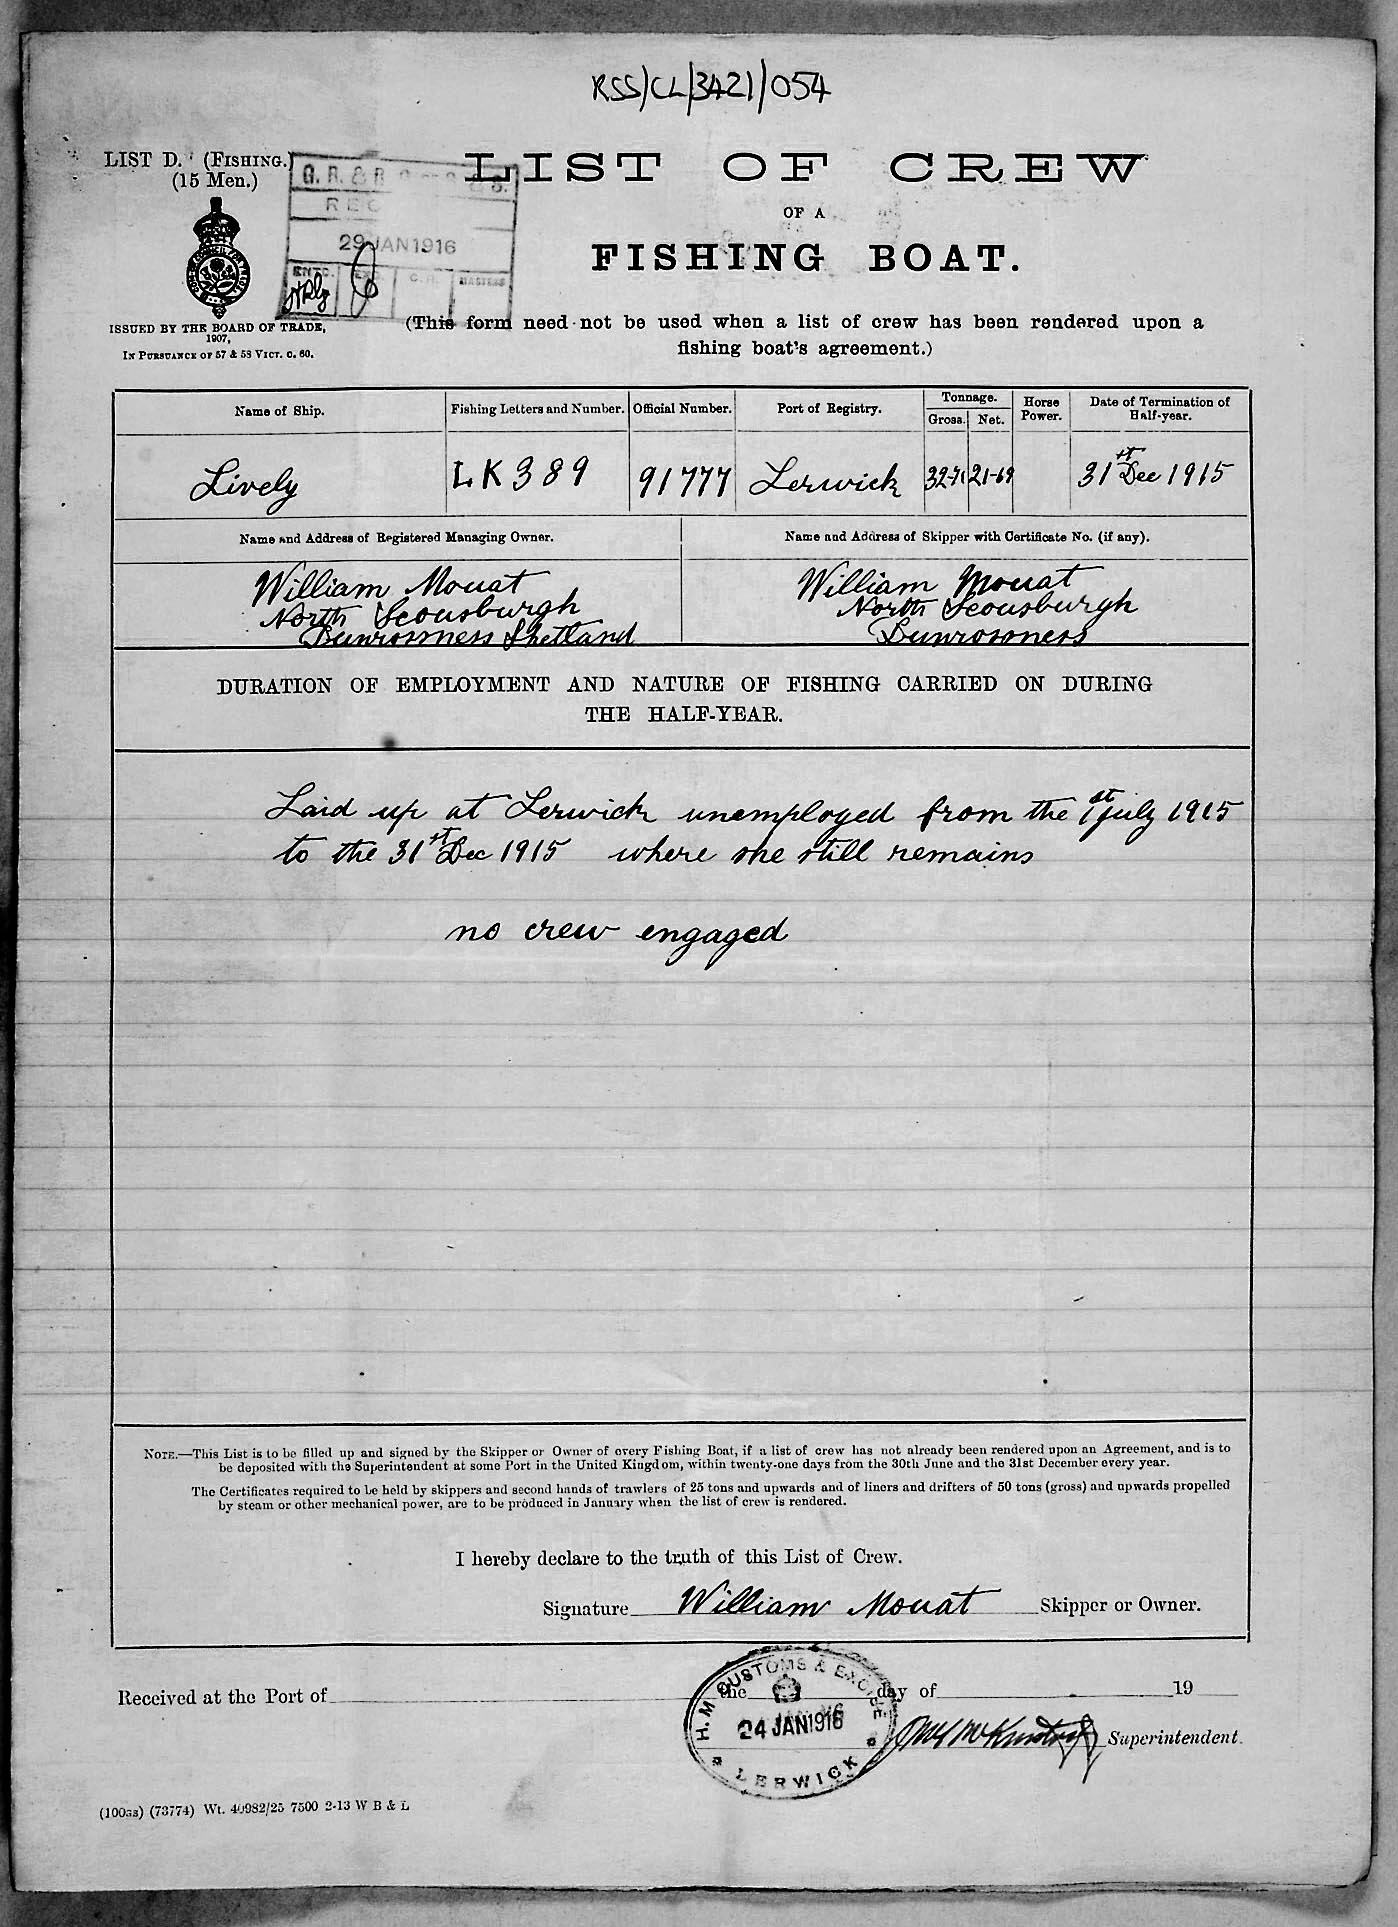 RSS/CL/3421/054
LIST D. (FISHING.)
(15 Men.)
LIST OF CREW
OF A
FISHING BOAT.
G. R. &
REC
29 JAN 1916
ENTD. EXD. MASTERS
ISSUED BY THE BOARD OF TRADE,
1907,
IN PURSUANCE OF 57 & 58 VICT. C. 60.
(This form need not be used when a list of crew has been rendered upon a
fishing boat's agreement.)
Name of Ship. Fishing Letters and Number. Official Number. Port of Registry. Tonnage. Gross. Net. Horse Power. Date of Termination of Half-year.
Lively LK 389 91777 Lerwick 32-71 21-69 31st Dec 1915
Name and Address of Registered Managing Owner. Name and Address of Skipper with Certificate No. (if any).
William Mouat William Mouat
North Scousburgh North Scousburgh
Dunrossness Shetland Dunrossness
DURATION OF EMPLOYMENT AND NATURE OF FISHING CARRIED ON DURING
THE HALF-YEAR.
Laid up at Lerwick unemployed from the 1st july 1915
to the 31st Dec 1915 where she still remains
no crew engaged
NOTE.—This List is to be filled up and signed by the Skipper or Owner of every Fishing Boat, if a list of crew has not already been rendered upon an Agreement, and is to
be deposited with the Superintendent at some Port in the United Kingdom, within twenty-one days from the 30th June and the 31st December every year.
The Certificates required to be held by skippers and second hands of trawlers of 25 tons and upwards and of liners and drifters of 50 tons (gross) and upwards propelled
by steam or other mechanical power, are to be produced in January when the list of crew is rendered.
I hereby declare to the truth of this List of Crew.
Signature William Mouat Skipper or Owner.
Received at the Port of the day of 19
H.M CUSTOMS & EXCISE
24 JAN 1916
LERWICK
Superintendent.
(100as) (73774) Wt. 40982/25 7500 2-13 W B & L